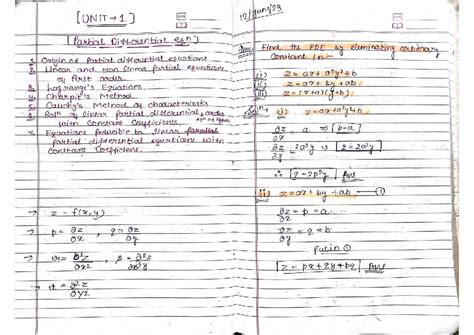 [UNIT → 1]
[Partial Differential eqⁿ]
1. Origin of partial differential equations
2. Linear and non linear partial equations
of first order
3. Lagrange's Equations.
4. Charpit's Method.
5. Cauchy's Method of characteristic
6. Solⁿ of linear partial differential
with constant Coefficients.
7. Equations reducible to linear partial
partial differential equations with
constant Coefficient.
→ z = f(x,y)
→ p = ∂z/∂x , q = ∂z/∂y
→ r = ∂²z/∂x² , s = ∂²z/∂x∂y
→ t = ∂²z/∂y²
Find the PDE by eliminating arbitrary
constant in :-
(i) z = ax + a²y² + b
(ii) z = ax + by + ab
(iii) z = (x+a)(y+b)
(i) z = ax + a²y² + b
∂z/∂x = a ⇒ [p = a]
∂z/∂y = 2a²y ⇒ [q = 2a²y]
∴ [q = 2p²y] Ans
(ii) z = ax + by + ab — (1)
∂z/∂x = p = a.
∂z/∂y = q = b
Put in ①
[z = px + qy + pq] Ans